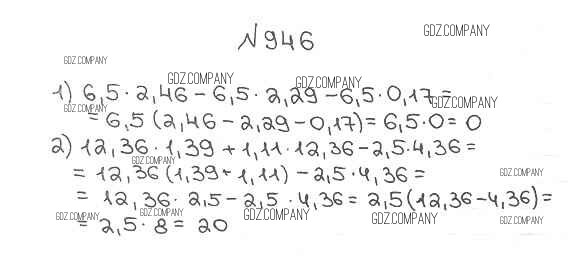 № 946
GDZ.COMPANY
GDZ.COMPANY
GDZ.COMPANY
GDZ.COMPANY
1) 6,5 · 2,46 – 6,5 · 2,29 – 6,5 · 0,17 =
GDZ.COMPANY
GDZ.COMPANY
= 6,5 (2,46 – 2,29 – 0,17) = 6,5 · 0 = 0
2) 12,36 · 1,39 + 1,11 · 12,36 – 2,5 · 4,36 =
GDZ.COMPANY
= 12,36 (1,39 + 1,11) – 2,5 · 4,36 =
GDZ.COMPANY
= 12,36 · 2,5 – 2,5 · 4,36 = 2,5 (12,36 – 4,36) =
GDZ.COMPANY
GDZ.COMPANY
GDZ.COMPANY
GDZ.COMPANY
GDZ.COMPANY
= 2,5 · 8 = 20